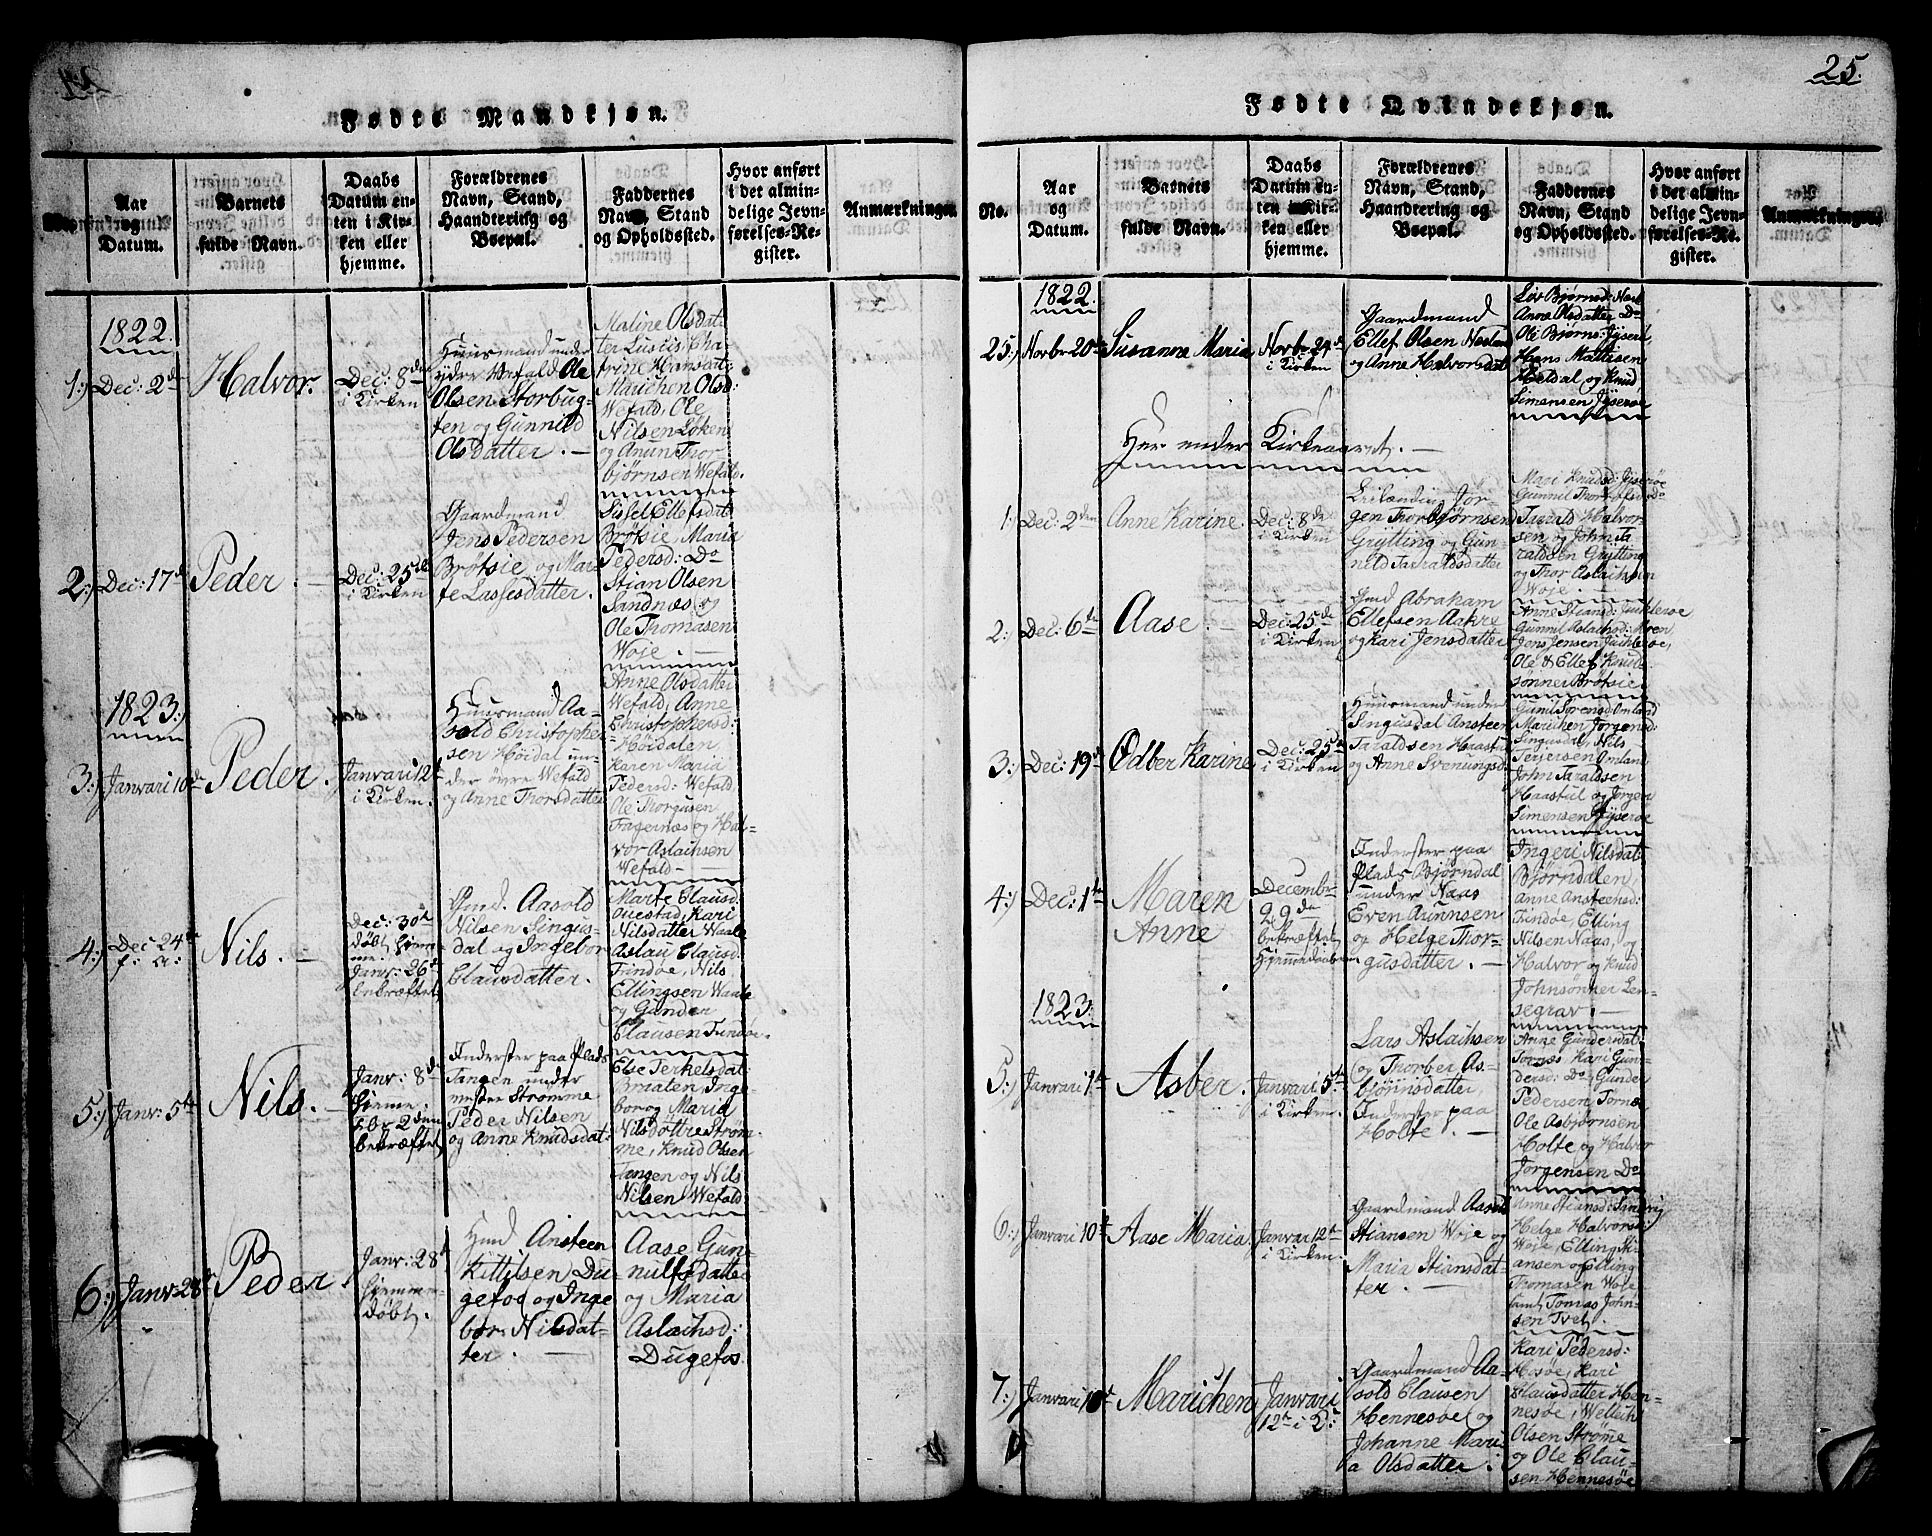 Fødte Mandkjøn.
No.
Aar
og
Datum.
Barnets
fulde Navn.
Daabs
Datum en-
ten i Kir-
ken eller
hjemme.
Forældrenes
Navn, Stand,
Haandtering og
Boepæl.
Faddernes
Navn, Stand
og Opholdssted.
Hvor anført
i det almin-
delige Jevn-
førelses-Re-
gister.
Anmærkninger.
1822.
1.) Dec: 2de
Halvor.
Dec: 8de
i Kirken
Huusmand under
ydre Wefald Ole
Olsen Storbug-
ten og Gunnild
Olsdatter. —
Maline Olsdat-
ter Lustis, Cha-
trine Hansdat:
Marichen Olsd:
Wefald, Ole
Nilsen Løken
og Anun Thor-
bjørnsen Wefald.
2.) Dec: 17de
Peder. —
Dec: 25de
i Kirken
Gaardmand
Jens Pedersen
Brøtsie, og Mar-
te Lassesdatter. —
Sissel Ellefsdat
Brøtsie, Maria
Pedersd: Do
Stian Olsen
Sandnæs og
Ole Thomasen
Woje. —
1823.
3.) Janvari 10de
Peder.
Janvari 12te
i Kirken.
Huusmand Aa-
sold Christopher-
sen Høidal un-
der øvre Wefald
og Anne Thorsdatter
Anne Olsdatter
Wefald, Anne
Christophersd:
Høidalen,
Karen Maria
Pedersd: Wefald
Ole Thorgusen
Fragernæs og Hal-
vor Aslachsen
Wefald —
4.) Dec: 24de
f: A:
Nils. —
Dec: 30te
døbt hjem-
me. Janv: 26de
bekræftet
Gmd. Aasold
Nilsen Singus-
dal og Ingebor
Clausdatter.
Marte Clausd:
Ouestad, Kari
Nilsdatter Waale
Aslau Clausd:
Findøe, Nils
Ellingsen Waale
og Gunder
Clausen Findøe.
5.) Janv: 5te
Nils. —
Janv: 8de
hjemme.
Febr 2den
bekræftet
Inderster paa Plads
Tangen under
mester Strømme
Peder Nilsen
og Anne Knudsdat-
Else Terkelsdat:
Braaten, Inge-
borog Maria
Nilsdøttre Strøm-
me, Knud Olsen
Tangen og Nils
Nilsen Wefald.
6.) Janv: 28de
Peder.
Janv: 28de
hjemme-
døbt.
Hmd Ansteen
Kittilsen Du-
gefos og Inge-
bor Nilsdat-
ter. —
Aase Gun-
nulfsdatter
og Maria
Aslachsd:
Dugefos.
25.
Fødte Qvindekjøn.
No.
Aar
og
Datum.
Barnets
fulde Navn.
Daabs
Datum en-
ten i Kir-
ken eller
hjemme.
Forældrenes
Navn, Stand,
Haandtering og
Boepæl.
Faddernes
Navn, Stand
og Opholdssted.
Hvor anført
i det almin-
delige Jevn-
førelses-Re-
gister.
Anmærkninger.
1822.
25.) Norbr 20de
Susanne Maria
Norbr 24de
i Kirken
Gaardmand
Ellef Olsen
og Anne Halvorsdat
Anne Olsdatter Do
Ole Bjørns: Jyserø
Hans Mattisen
Heldal og Knud
Simensen Jyserøe
Her ender Kirkeaaret. —
1.) Dec: 2den
Anne Karine.
Dec: 8de
i Kirken
Leilænding Jør-
gen Thorbjørnsen
Grytting og Gun-
nild Taraldsdatter
Mari Knudsd: Jyserøe
Gunnil Thorlofsd: do
Tarald Halvor-
sen og John Ta-
raldsen Grytting
og Thor Aslachsen
Woje. —
2.) Dec: 6te
Aase. —
Dec: 25de
i Kirken
Gmd Abraham
Ellefsen Aakre
og Kari Jensdatter
Anne Stiansd:
Gunnil Aslachsd:
Jens Jensen
Ole & Ellef Knud-
sønner Brøtsie.
3.) Dec: 19de
Odber Karine
Dec: 25de
i Kirken
Huusmand under
Singusdal Ansteen
Taraldsen Haastul
og Anne Svenungsd:
Gunil Sørensd: Omland
Marichen Jørgensd:
Singusdal, Nils
Terjersen Omland
John Taraldsen
Haastul og Jørgen
Simensen Jyserøe
4.) Dec: 1te
Maren
Anne
Decembr
29de
bekræftet
Hjemmedaaben
Inderster paa
Plads Bjørndal
under Naas
Even Aunnsen
og Helge Thor-
gusdatter. —
Ingeri Nilsdat:
Bjørndalen,
Anne Ansteensd:
Findøe, Elling
Nilsen Naas, og
Halvor og Knud
Johnsønner Len-
segrav. —
1823.
5.) Janvari 1te
Asber.
Janvari 5te
i Kirken.
Lars Aslachsen
og Thorber As-
bjørnsdatter,
Inderster paa
Holte. —
Anne Gundersdat
Tornæs, Kari Gun-
dersd: Do, Gunder
Pedersen Tornæs
Ole Asbjørnsen
Holte og Halvor
Jørgensen Do
6.) Janvari 10de
Aase Maria.
Janvar 12te
i Kirken.
Gaardmand Aasold
Stiansen Woje og
Maria Stiansdat-
ter. —
Anne Stiansd:
Helge Halvorsd:
Woje, Elling Sti-
ansen og Elling
Thomasen Woje
samt Tomas John-
sen Tvet.
7.) Janvari 10de
Marichen
Janvari
12te i K:
Gaardmand Aa-
sold Clausen
Hennesøe og
Johanne Mari-
a Olsdatter.
Kari Pedersd:
Hesøe, Kari
Clausdatter Hen-
nesøe, Wellichs
Olsen Strøme
og Ole Clau-
sen Hennesøe